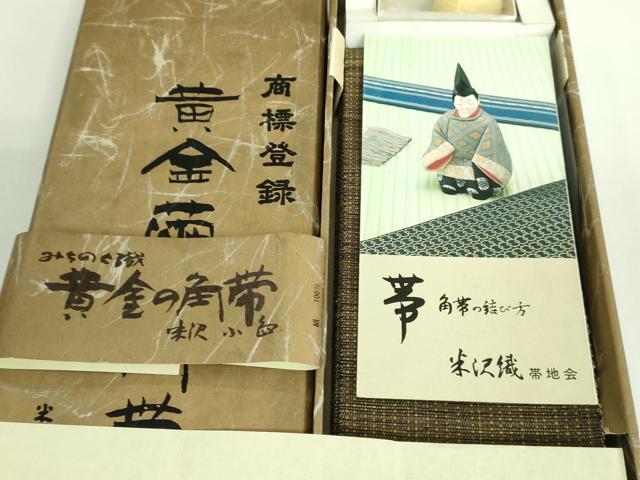 商標登録
黄金繭
みちのく織
黄金の角帯
米沢 小
100%
帯
米
帯
角帯の結び方
米沢織 帯地会